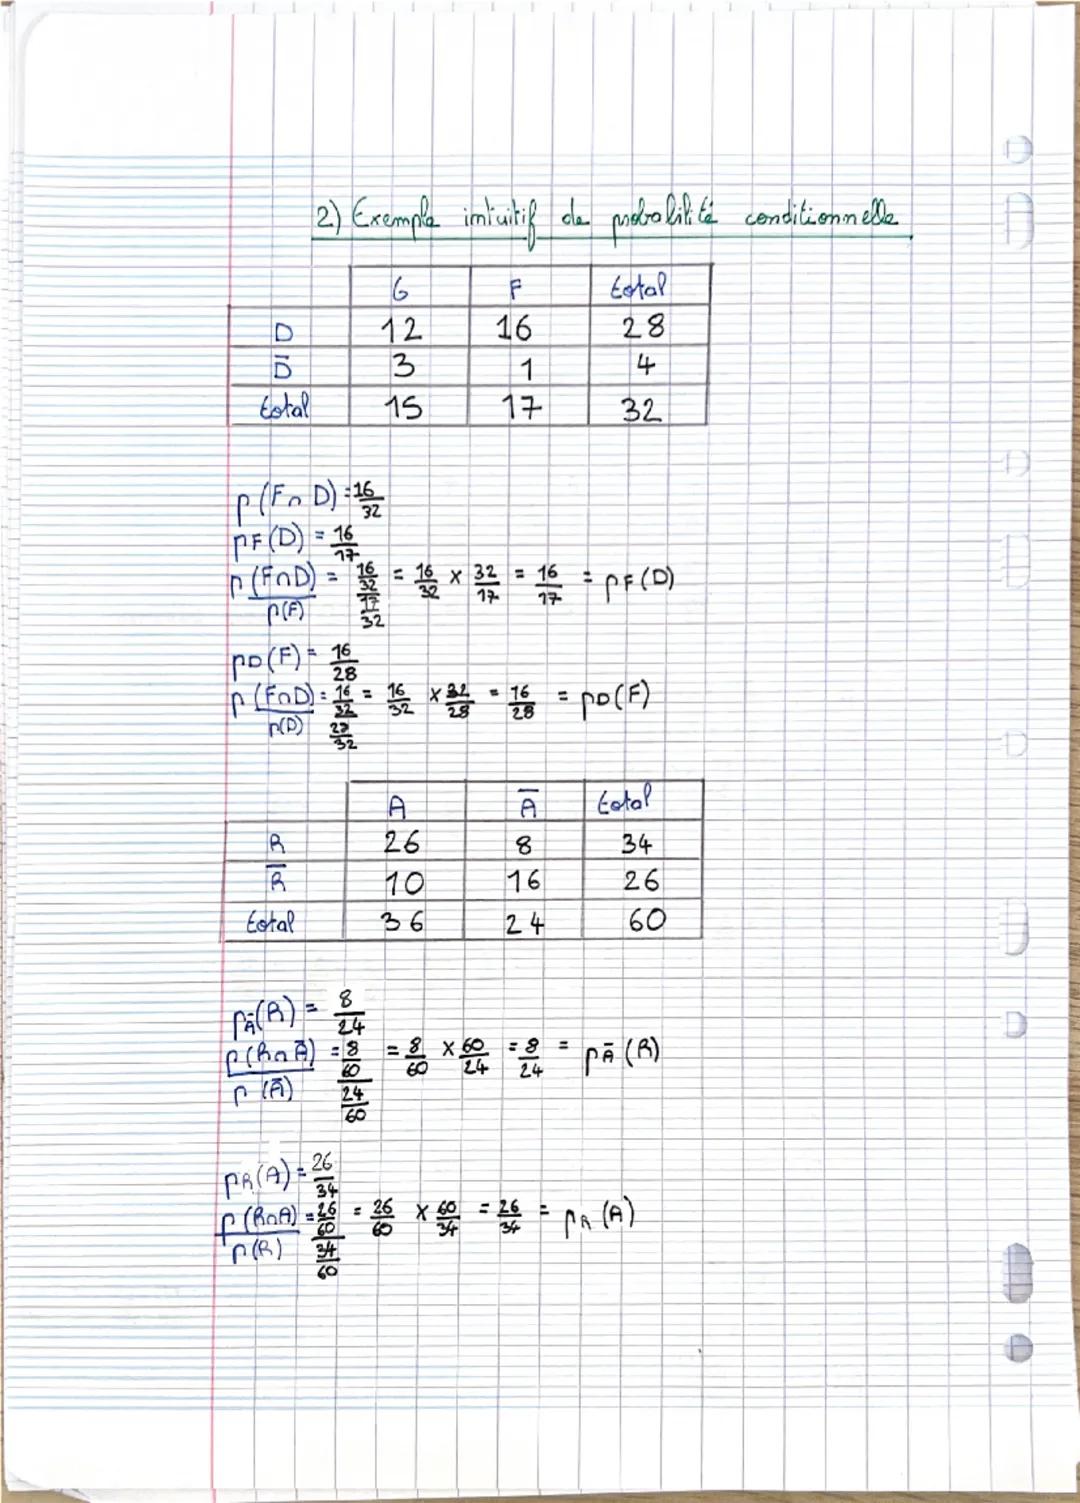 2) Exemple intuitif de probabilité conditionnelle
G F total
D 12 16 28
D̅ 3 1 4
total 15 17 32
p(F∩D) = 16/32
pF(D) = 16/17
p(F∩D)/p(F) = (16/32)/(17/32) = 16/32 × 32/17 = 16/17 = pF(D)
pD(F) = 16/28
p(F∩D)/p(D) = (16/32)/(28/32) = 16/32 × 32/28 = 16/28 = pD(F)
A A̅ total
R 26 8 34
R̅ 10 16 26
total 36 24 60
pA̅(R) = 8/24
p(R∩A̅)/p(A̅) = (8/60)/(24/60) = 8/60 × 60/24 = 8/24 = pA̅(R)
pR(A) = 26/34
p(R∩A)/p(R) = (26/60)/(34/60) = 26/60 × 60/34 = 26/34 = pR(A)